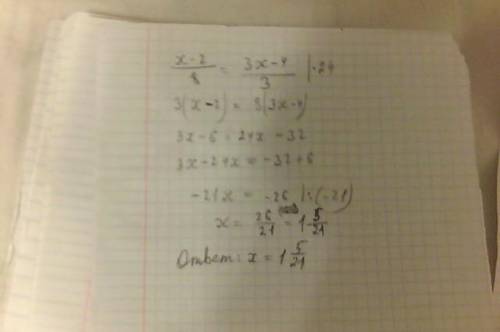 x-2/8 = 3x-4/3 |·24
3(x-2) = 8(3x-4)
3x-6 = 24x-32
3x-24x = -32+6
-21x = -26 |:(-21)
x = 26/21 = 1 5/21
Ответ: x = 1 5/21